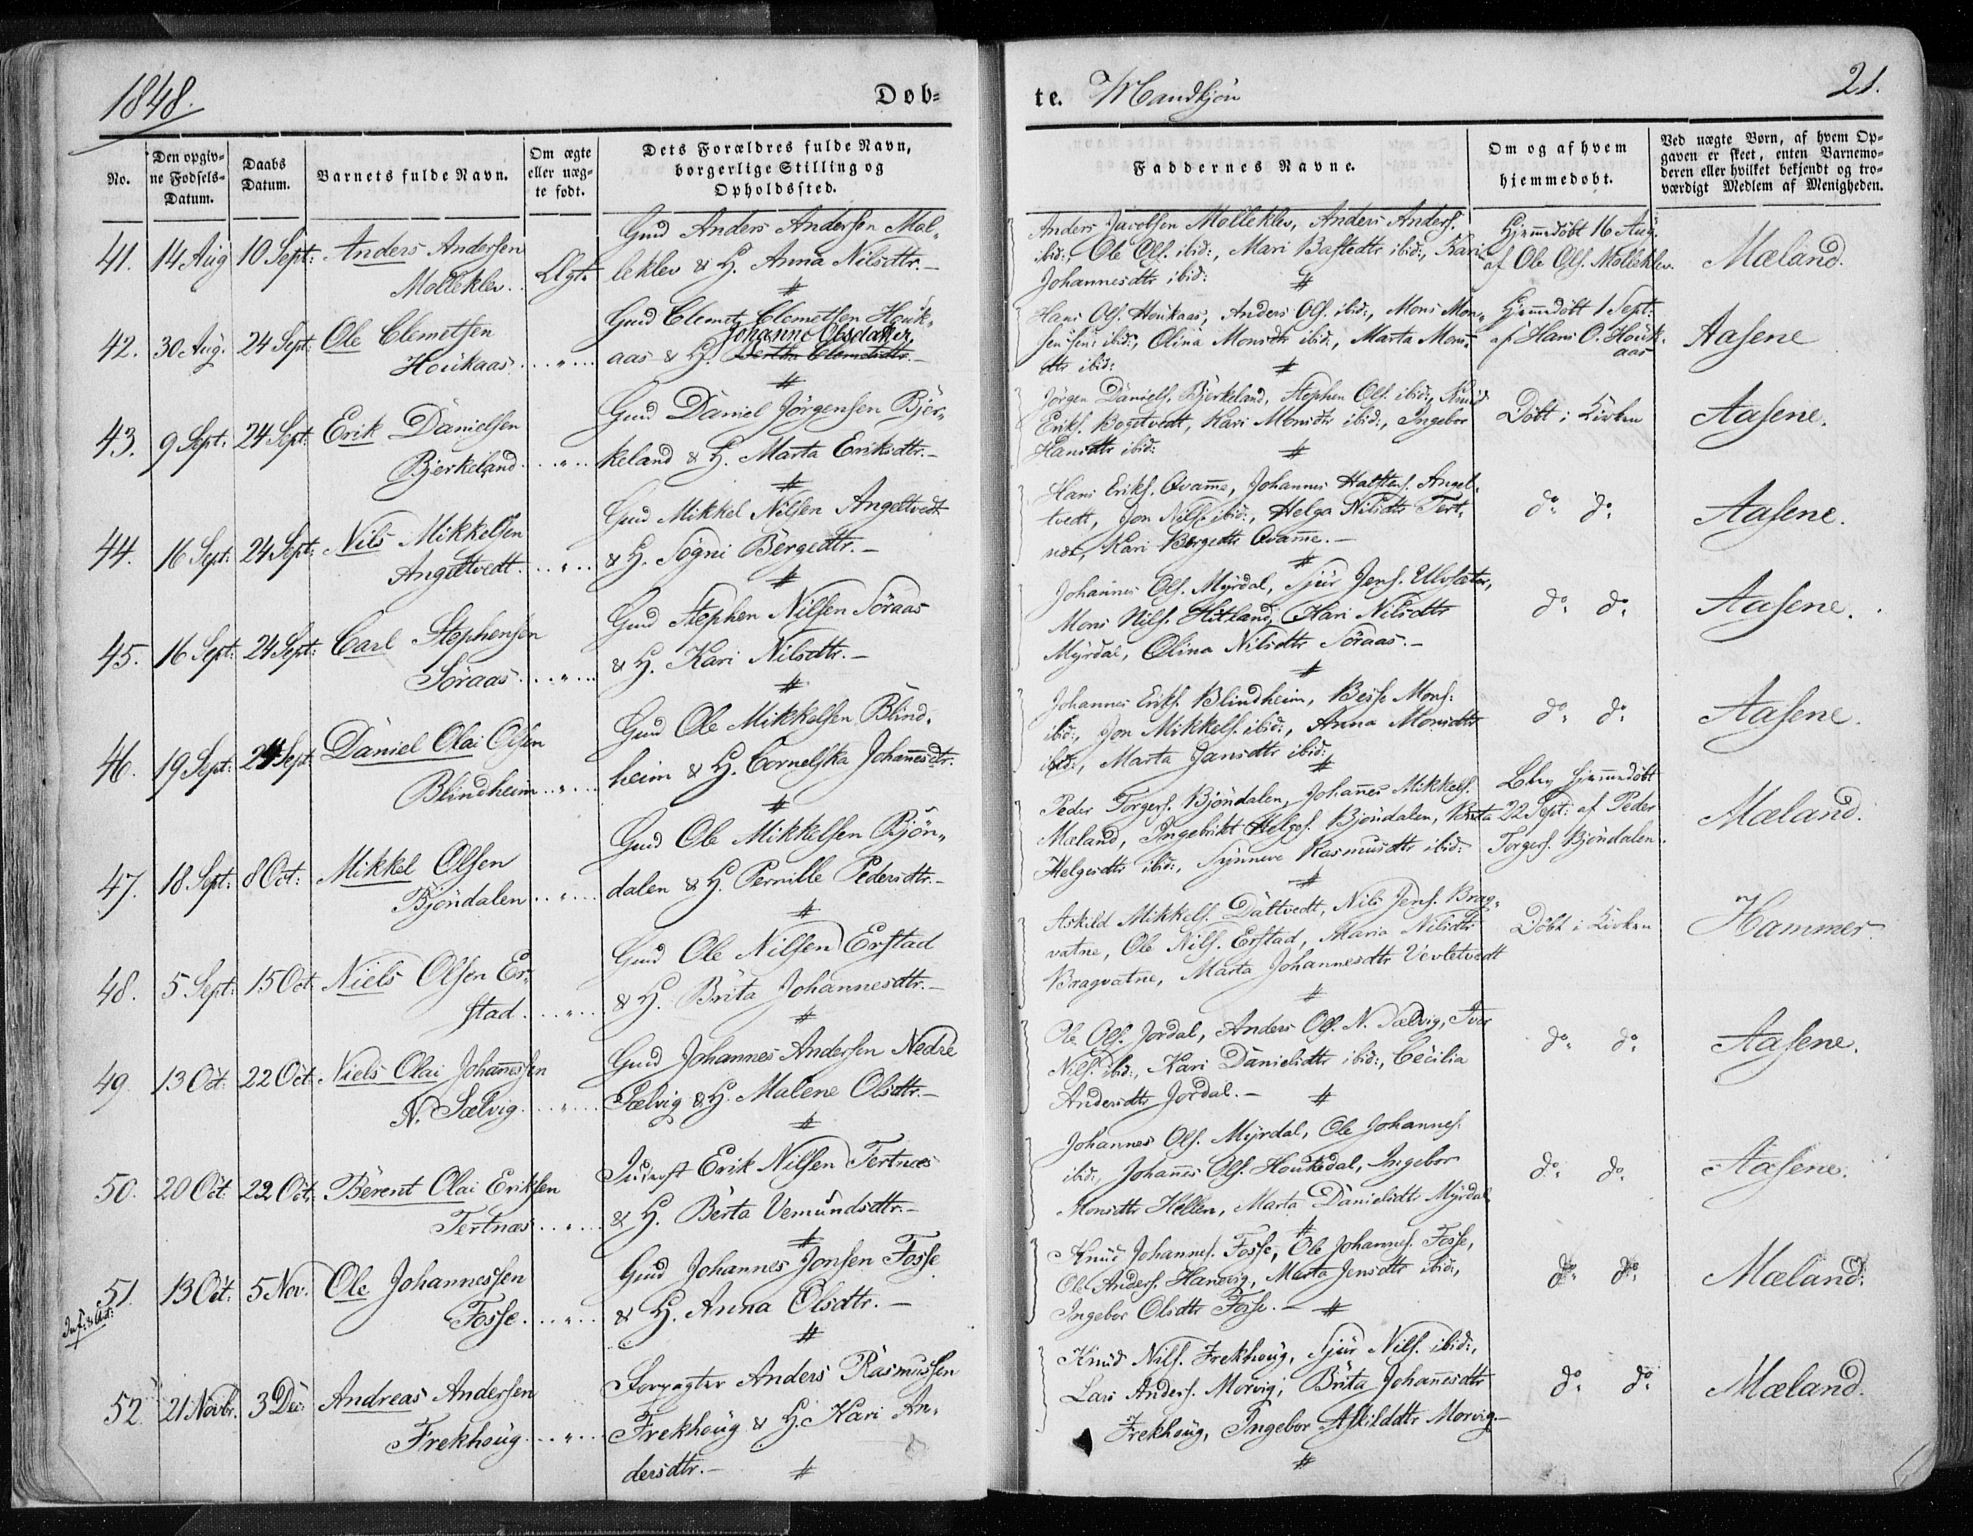 1848.
Døb-
te. Mandkjøn
21.
No.
Den opgiv-
ne Fødsels-
Datum.
Daabs
Datum.
Barnets fulde Navn.
Om ægte
eller uæg-
te født.
Dets Forældres fulde Navn,
borgerlige Stilling og
Opholdssted.
Faddernes Navne.
Om og af hvem
hjemmedøbt.
Ved uægte Børn, af hvem Op-
gaven er skeet, enten Barnemo-
deren eller hvilket bekjendt og tro-
værdigt Medlem af Menigheden.
41. 14 Aug 10 Sept: Anders Andersen
Mølleklev. Ægte
Gmd Anders Andersen Møl-
leklev & H. Anna Nilsdtr.-
Anders Jacobsen Mølleklev, Anders Anders.
ibid:, Ole Ols. ibid:, Mari ibid:, Kari
Johannesdtr ibid:
Hjemmedøbt 16 Aug.
af Ole Ols. Mølleklev.
Mæland.
42. 30 Aug. 24 Sept: Ole Clemetsen
Houkaas
Gmd Clemet Clemetsen Houk-
Johanne Olsdatter
aas & H. Bertha Clemetsdtr.-
Hans Ols. Houkaas, Anders Ols. ibid:, Mons Mon-
sen ibid:, Olina Monsdtr ibid:, Marta Mons-
dtr ibid:
Hjemmedøbt 1 Sept:
af Hans O. Houk-
aas
Aasene
43. 9 Sept: 24 Sept: Erik Danielsen
Bjerkeland
Gmd Daniel Jørgensen Bjer-
keland & H. Marta Eriksdtr.-
Jørgen Daniels. Bjerkeland, Stephen Ols. ibid:, Knud
Eriks. Bogetvedt, Kari Monsdtr ibid:, Ingebor
Hansdtr ibid:
Døbt i Kirken
Aasene.
44. 16 Sept: 24 Sept: Nils Mikkelsen
Angeltvedt.
Gmd Mikkel Nilsen Angeltvedt
& H. Søgni Børgedtr.-
Hans Eriks. Qvamme, Johannes Halstens. Angel-
tvedt, Jon Nils. ibid:, Helga Nilsdtr Tert-
næs, Kari Børgedtr Qvamme.-
do do
Aasene.
45. 16 Sept: 24 Sept: Carl Stephensen
Søraas
Gmd Stephen Nilsen Søraas
& H. Kari Nilsdtr.-
Johannes Ols. Myrdal, Sjur Jens. Ulvsæter,
Mons Nils. Hitland, Kari Nilsdtr
Myrdal, Olina Nilsdtr Søraas.-
do do
Aasene.
46. 19 Sept: 24 Sept Daniel Olai Olsen
Blindheim
Gmd Ole Mikkelsen Blind-
heim & H. Cornelska Johannesdtr.
Johannes Eriks. Blindheim, Besse Mons.
ibid:, Jon Mikkels. ibid:, Anna Monsdtr
ibid:, Marta Jansdtr ibid:
do do
Aasene.
47. 18 Sept: 8 Oct: Mikkel Olsen
Bjøndalen
Gmd Ole Mikkelsen Bjøn-
dalen & H. Pernille Pedersdtr.-
Peder Torgers. Bjøndalen, Johannes Mikkels.
Mæland, Ingebrikt Helges. Bjøndalen, Brita
Helgesdtr ibid:, Synneve Rasmusdtr ibid:
hjemmedøbt
22 Sept: af Peder
Torgers. Bjøndalen.
Mæland.
48. 5 Sept: 15 Oct Niels Olsen Er-
stad
Gmd Ole Nilsen Erstad
& H. Brita Johannesdtr.-
Askild Mikkels. Dåltvedt, Nils Jens. Brag-
vatne, Ole Nils. Erstad, Maria Nilsdtr
Bragvatne, Marta Johannesdtr Vevletvedt
Døbt i Kirken
Hammer.
49. 13 Oct. 22 Oct Niels Olai Johannessen
N. Sælvig
Gmd Johannes Andersen Nedre
Sælvig & H. Malene Olsdtr.-
Ole Ols. Jordal, Anders Ols. N. Sælvig, Iver
Nils. ibid:, Kari Danielsdtr ibid:, Cecilia
Andersdtr Jordal.-
do do
Aasene.
50. 20 Oct 22 Oct. Bêrent Olai Eriksen
Tertnæs
Inderst Erik Nilsen Tertnæs
& H. Berta Vemundsdtr.-
Johannes Ols. Myrdal, Ole Johannes.
ibid:, Johannes Ols. Houkedal, Ingebor
Monsdtr Hellen, Marta Danielsdtr Myrdal
do do
Aasene.
51. 13 Oct: 5 Nov. Ole Johannessen
Fosse.
Gmd Johannes Jonsen Fosse
& H. Anna Olsdtr.-
Knud Johannes. Fosse, Ole Johannes. Fosse,
Ole Anders. Hanevig, Marta Jensdtr ibid:,
Ingebor Olsdtr Fosse.-
do do
Mæland.
52. 21 Novbr. 3 Dec: Andreas Andersen
Frekhoug
Forpagter Anders Rasmussen
Frekhoug & H. Kari An-
dersdtr.-
Knud Nils. Frekhoug, Sjur Nils. ibid:,
Lars Anders. Morvig, Brita Johannesdtr
Frekhoug, Ingebor Askilddtr Morvig-
do do
Mæland.